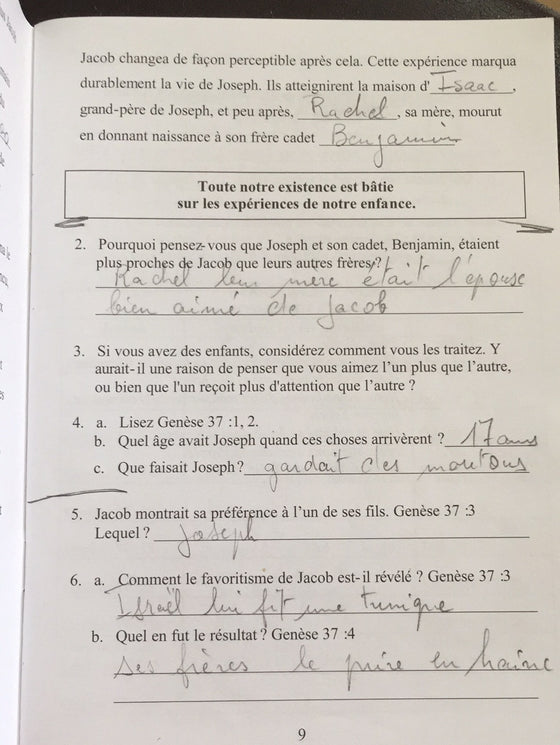 Jacob changea de façon perceptible après cela. Cette expérience marqua
durablement la vie de Joseph. Ils atteignirent la maison d' Isaac ,
grand-père de Joseph, et peu après, Rachel , sa mère, mourut
en donnant naissance à son frère cadet Benjamin
Toute notre existence est bâtie
sur les expériences de notre enfance.
2. Pourquoi pensez-vous que Joseph et son cadet, Benjamin, étaient
plus proches de Jacob que leurs autres frères?
Rachel leur mère était l'épouse
bien aimé de Jacob
3. Si vous avez des enfants, considérez comment vous les traitez. Y
aurait-il une raison de penser que vous aimez l'un plus que l'autre,
ou bien que l'un reçoit plus d'attention que l'autre ?
4. a. Lisez Genèse 37 :1, 2.
b. Quel âge avait Joseph quand ces choses arrivèrent ? 17 ans
c. Que faisait Joseph? gardait des moutons
5. Jacob montrait sa préférence à l'un de ses fils. Genèse 37 :3
Lequel ? Joseph
6. a. Comment le favoritisme de Jacob est-il révélé ? Genèse 37 :3
Israël lui fit une tunique
b. Quel en fut le résultat ? Genèse 37 :4
ses frères le prire en haine
9